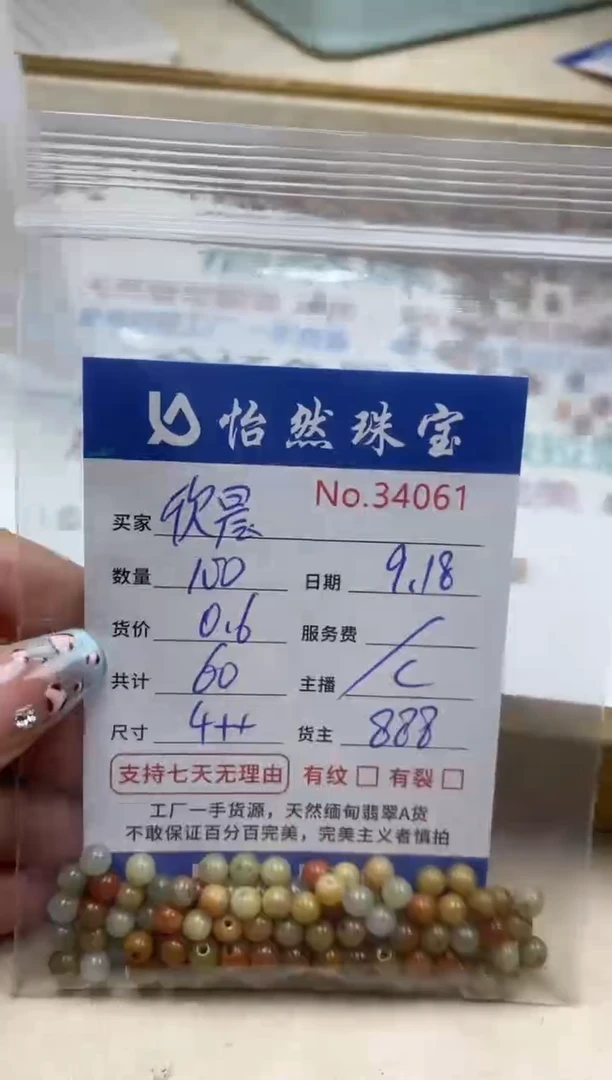 怡然珠宝
No.34061
买家 欣晨
数量 100 日期 9.18
货价 0.6 服务费 /
共计 60 主播 C
尺寸 4++ 货主 888
支持七天无理由 有纹 □ 有裂 □
工厂一手货源，天然缅甸翡翠A货
不敢保证百分百完美，完美主义者慎拍